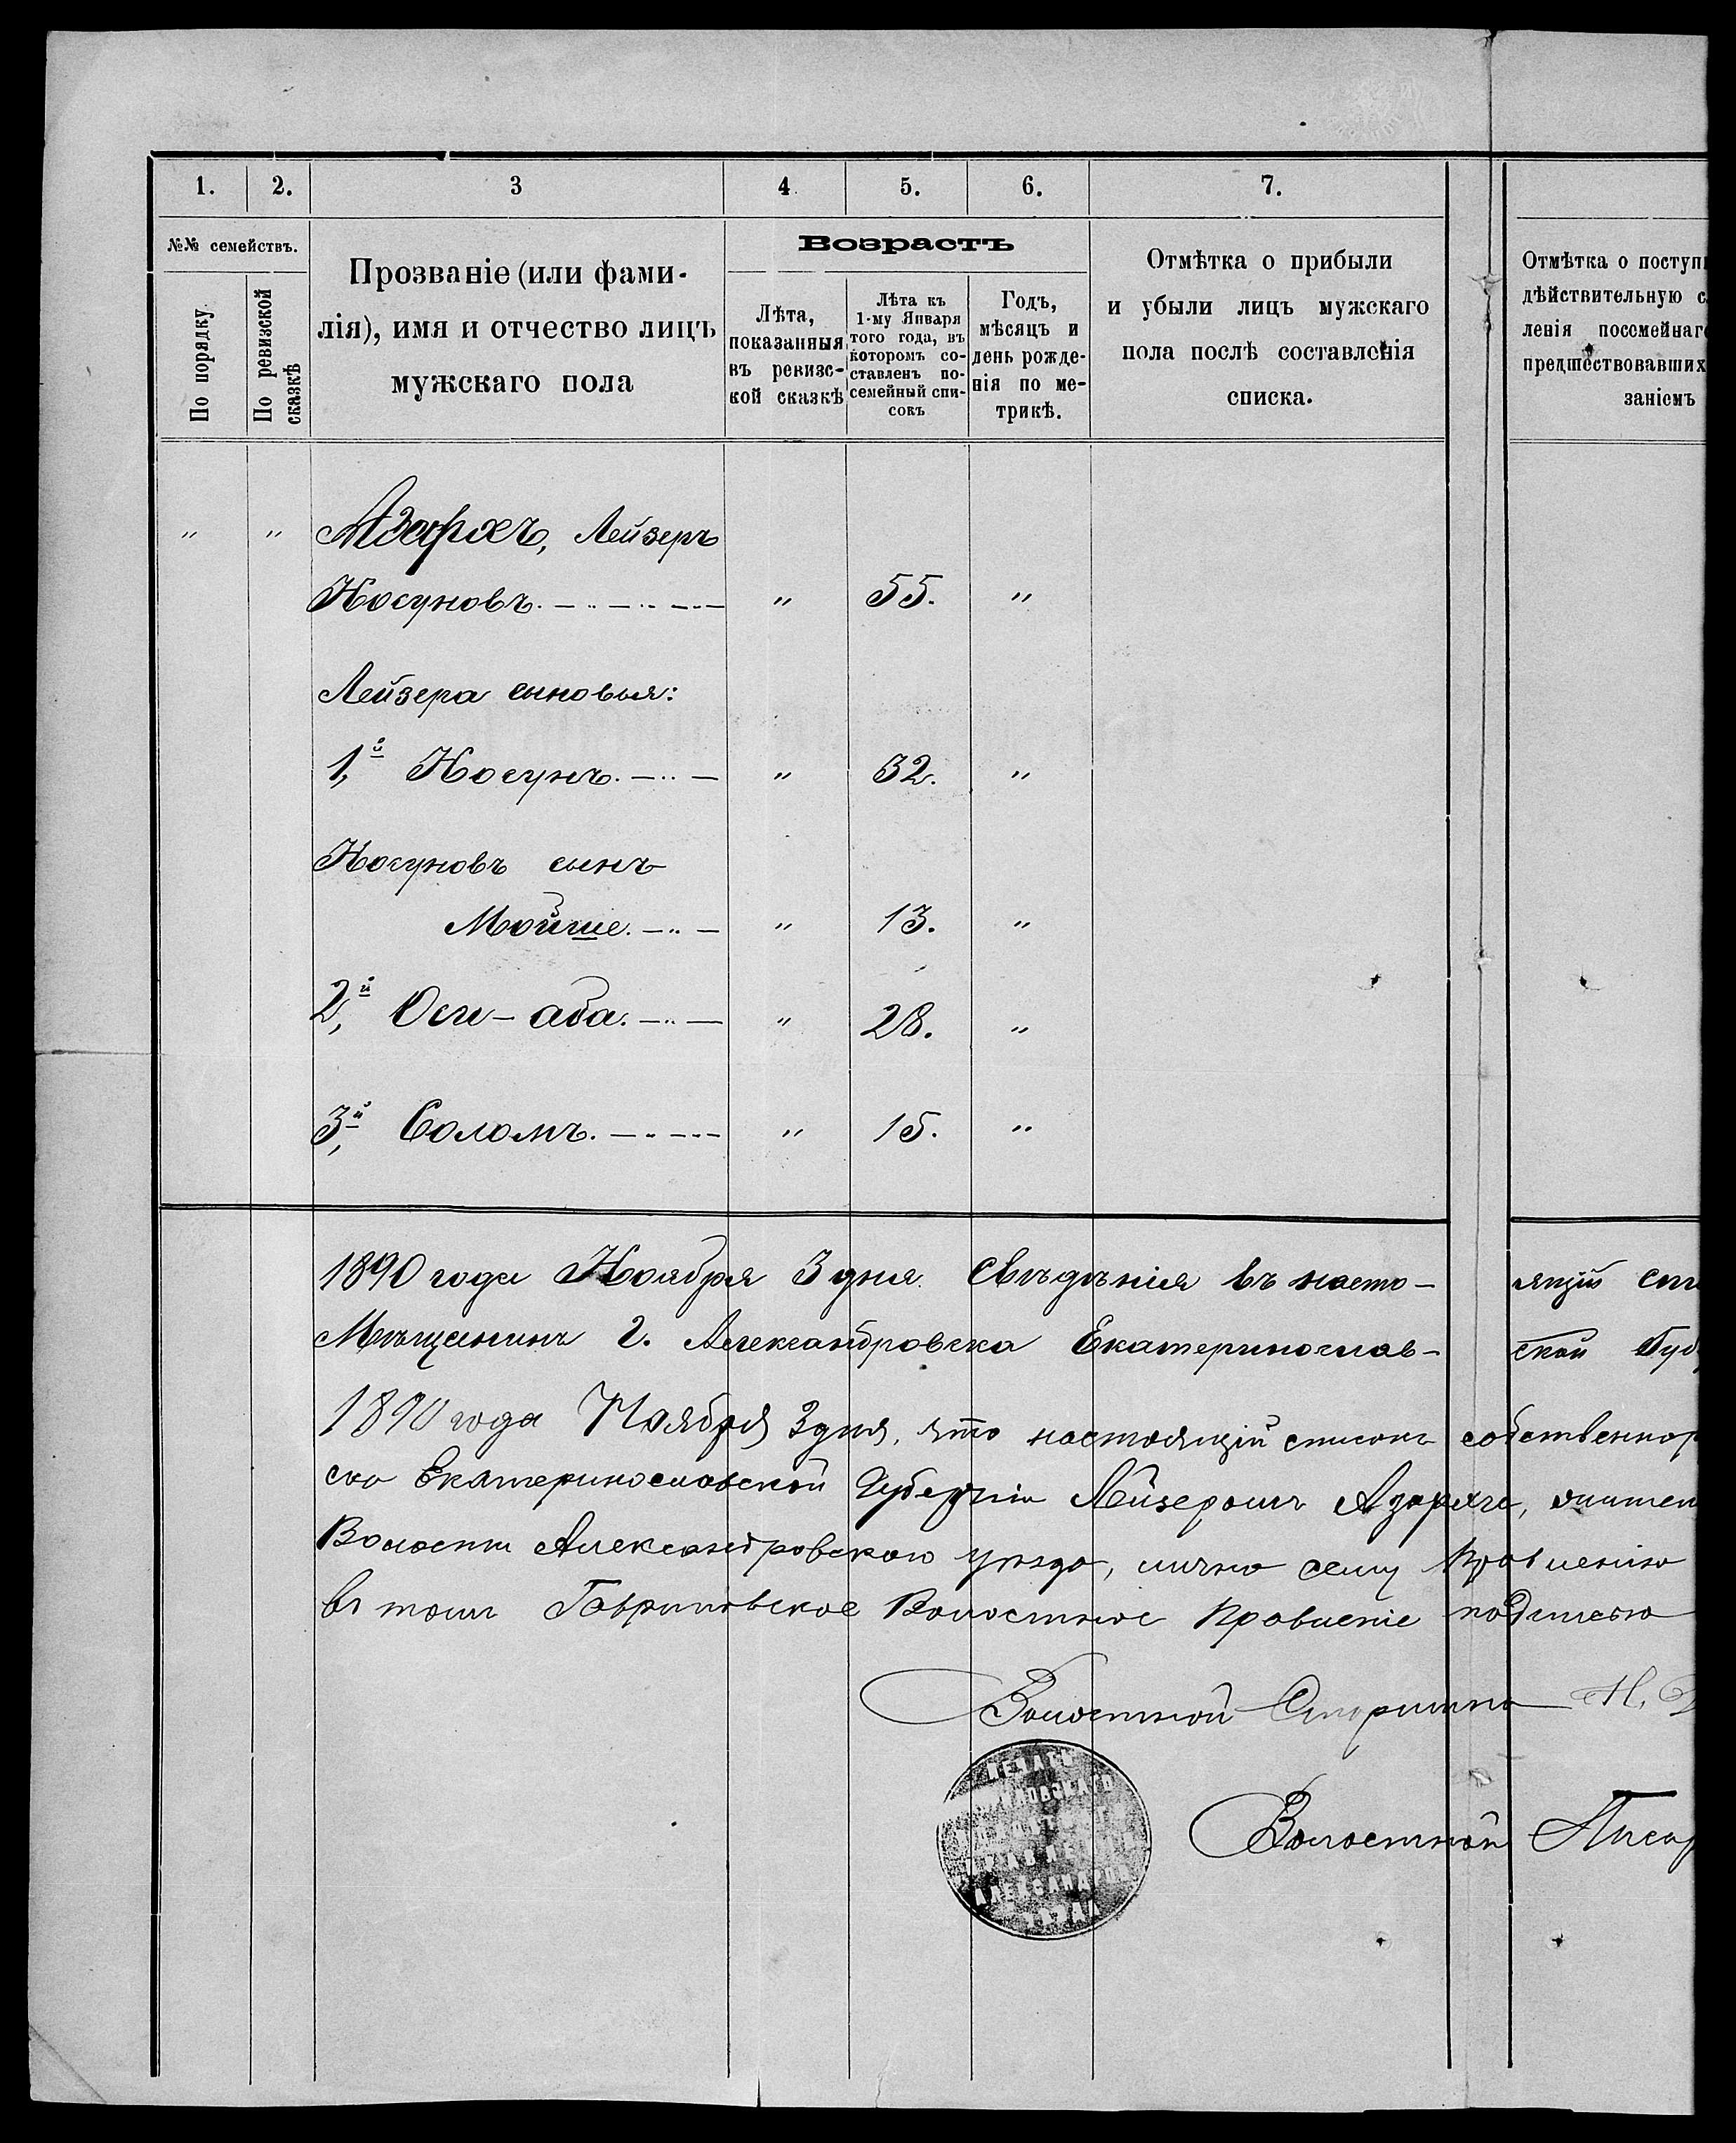 1. 2. 3 4. 5. 6. 7.
№№ семействъ.
По порядку.
По ревизской
сказкѣ
Прозваніе (или фами-
лія), имя и отчество лицъ
мужскаго пола
Возрастъ
Лѣта,
показанныя
въ ревизс-
кой сказкѣ
Лѣта къ
1-му Января
того года, въ
которомъ со-
ставленъ по-
семейный спи-
сокъ
Годъ,
мѣсяцъ и
день рожде-
нія по ме-
трикѣ.
Отмѣтка о прибыли
и убыли лицъ мужскаго
пола послѣ составленія
списка.
Отмѣтка о поступ
дѣйствительную с
ленія посемейнаг
предшествовавших
заніемъ
" " Азархъ, Лейзеръ
Носуновъ. " 55. "
Лейзера сыновья:
1,й Носунъ. " 32. "
Носуновъ сынъ
Мойше. " 13. "
2,й Оси-аба. " 28. "
3,й Соломъ. " 15. "
1890 года Ноября 3 дня Свѣдѣнія въ насто- ящій спи
Мѣщанинъ г. Александровска Екатеринослав- ской Губ
1890 года Ноября 3 дня, что настоящій списокъ собственнор
ска Екатеринославской Губерніи Лейзеромъ Азархъ, жител
Волости Александровскаго уѣзда, лично сему Правленію
въ томъ Гавриловское Волостное Правленіе подписью
Волостной Старшина Н.
Волостной Писар
ПЕЧАТЬ
АЛЕКСАНДРОВ
УѢЗДА